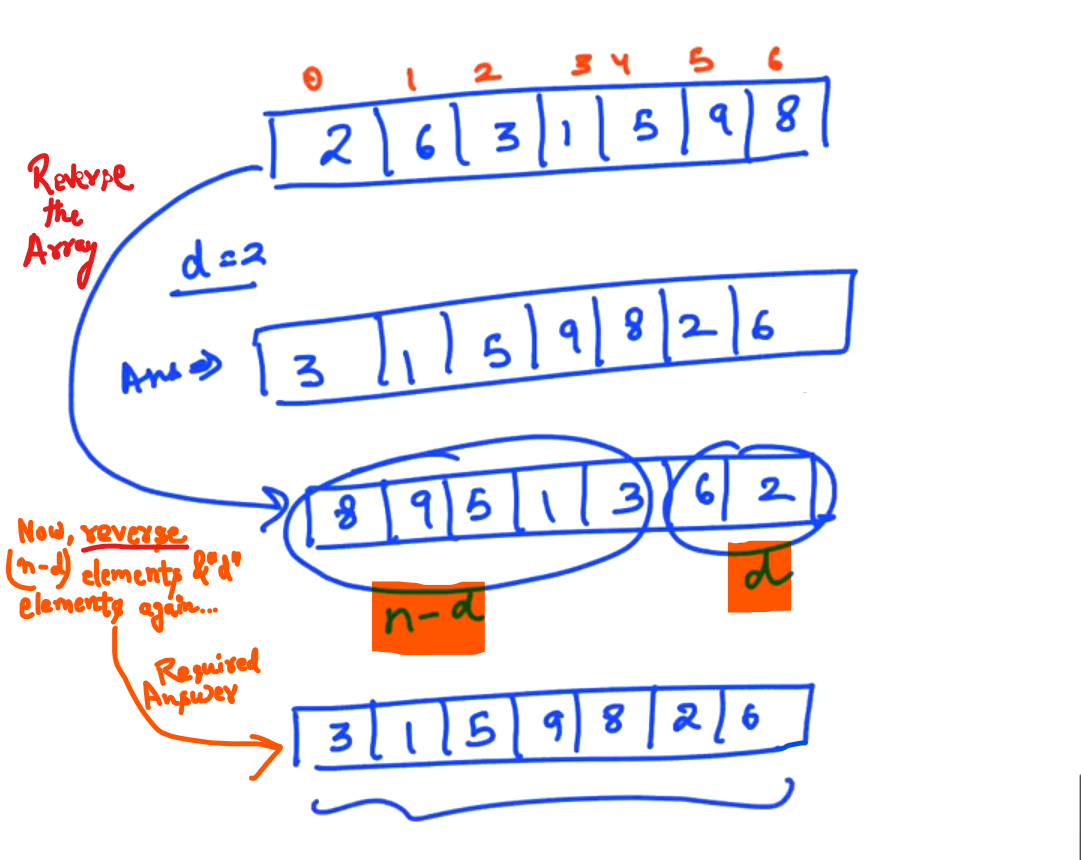 0 1 2 3 4 5 6
2 6 3 1 5 9 8
Reverse
the
Array
d = 2
Ans ⇒ 3 1 5 9 8 2 6
8 9 5 1 3 6 2
n-d d
Now, reverse
(n-d) elements & "d"
elements again...
Required
Answer
3 1 5 9 8 2 6